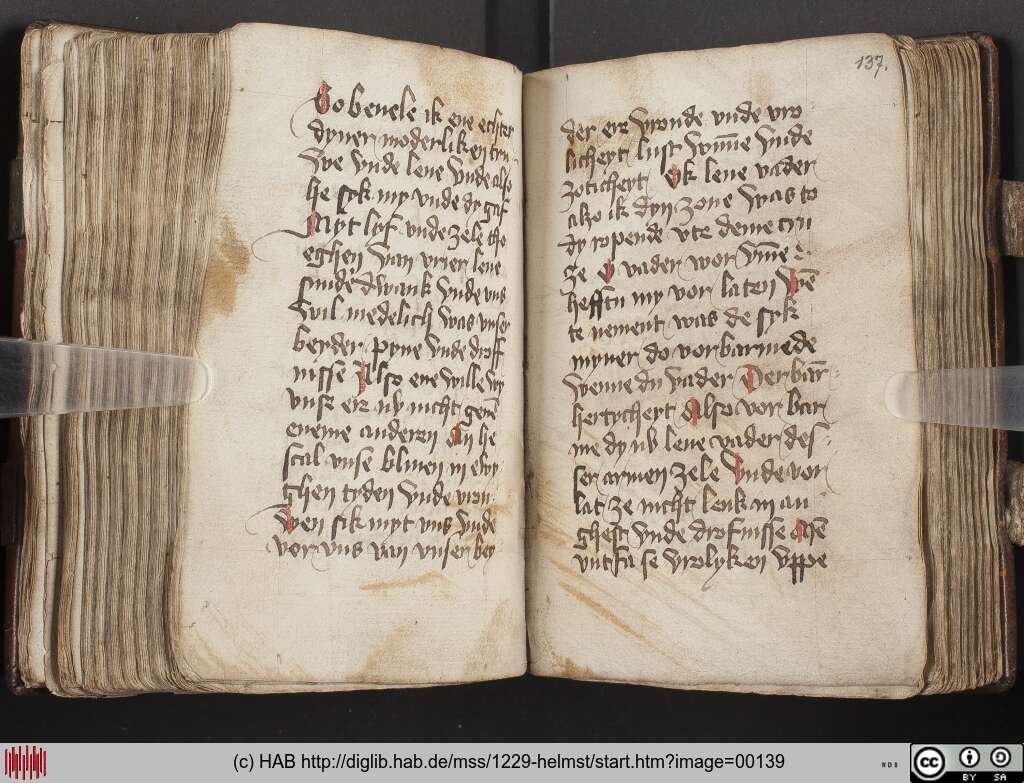 So bevele ik ene echter
dyner moderliken tru
we vnde leve vnde also
he syk my vnde dy gaf
Myt lyf vnde zele tho
eghen van vrier leve
sunder dwank vnde vns
vil medelich was vnser
beyder pyne vnde drof
nisse Also ene wille wy
vnse ere nicht geven
eneme anderen he
scal vnse bliven in ewy
ghen tyden vnde vrou
wen sik myt vns vnde
vor vns van vnser bey
137.
der ere vronde vnde vro
licheyt lust wunne vnde
zoticheyt Ok leve vader
also ik dyn zone was to
dy ropende vte deme cru
ze O vader wor vmme
heffstu my vor laten
te nement was de syk
myner do vorbarmede
wenne du vader Der bar
herticheyt Also vor bar
me dy nu leve vader des
ser armen zele Vnde vor
lat ze nicht lenk in an
ghest vnde drofnisse
untfa se vrolyken vppe
(c) HAB http://diglib.hab.de/mss/1229-helmst/start.htm?image=00139
WDB
cc
BY SA